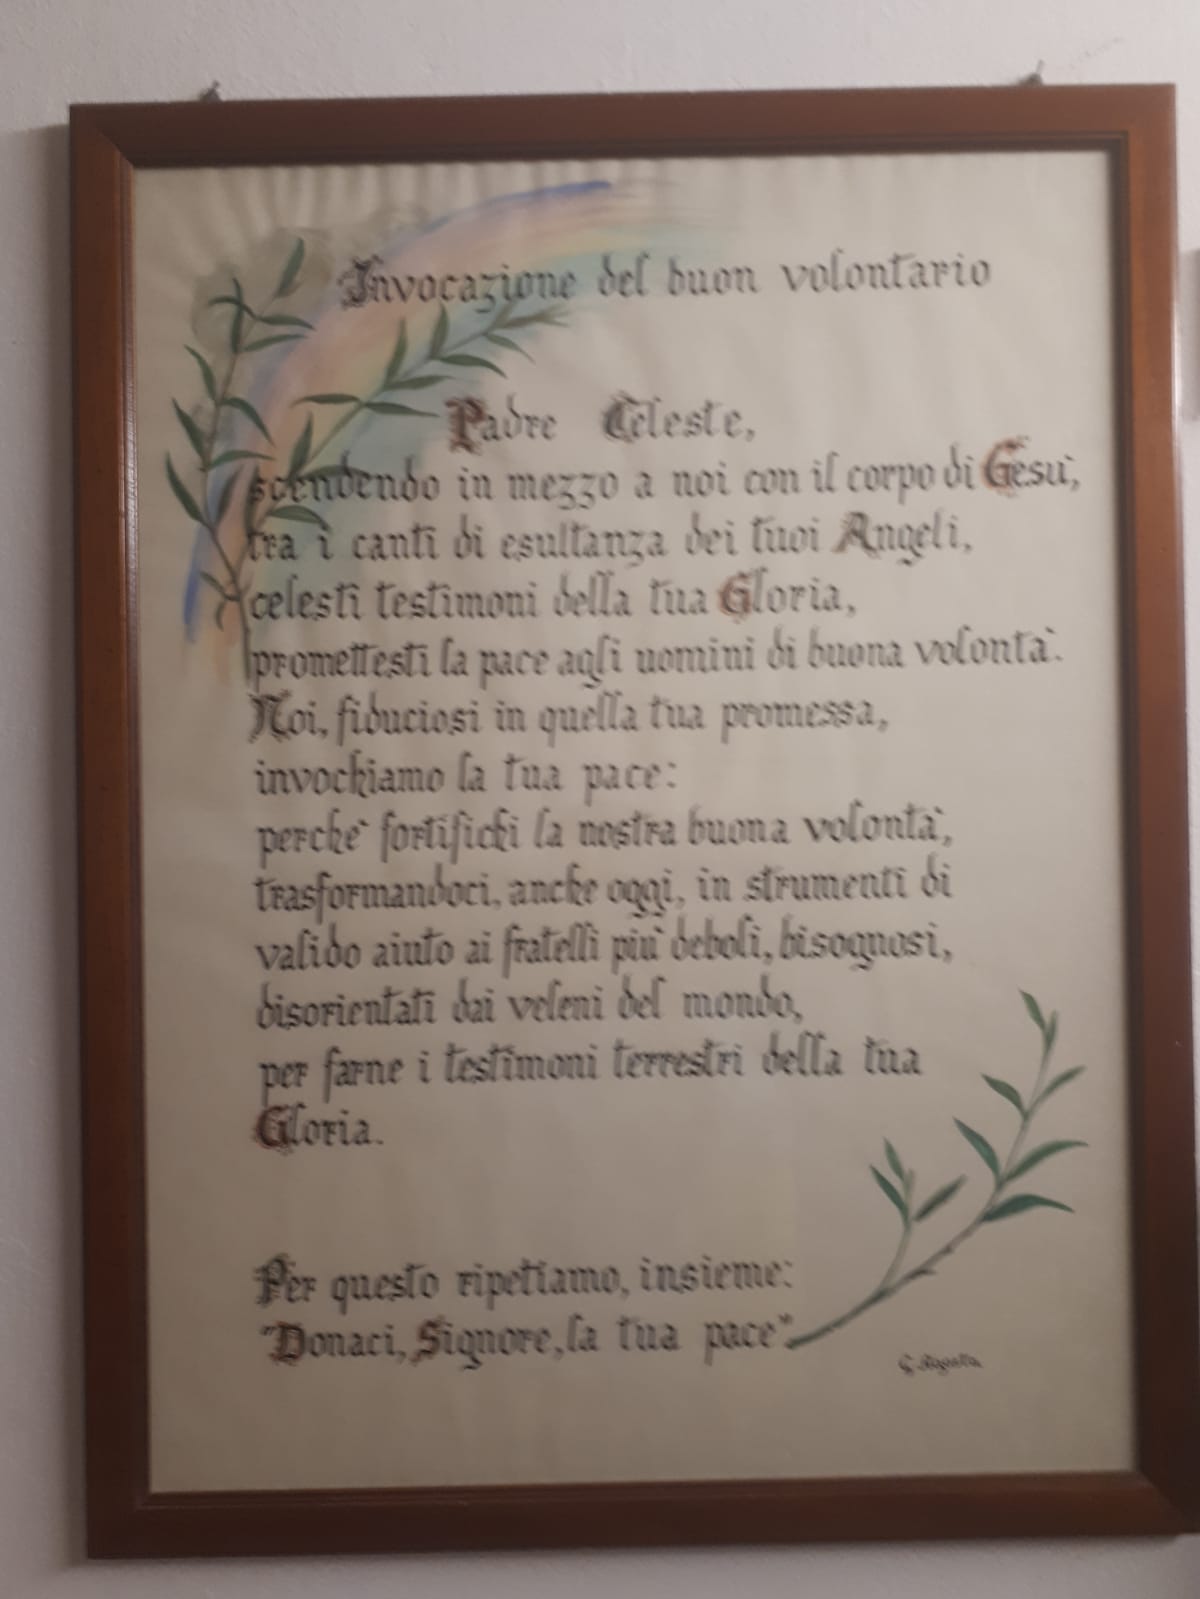 Invocazione del buon volontario
Padre Celeste,
scendendo in mezzo a noi con il corpo di Gesù,
tra i canti di esultanza dei tuoi Angeli,
celesti testimoni della tua Gloria,
promettesti la pace agli uomini di buona volontà.
Noi, fiduciosi in quella tua promessa,
invochiamo la tua pace:
perchè fortifichi la nostra buona volontà,
trasformandoci, anche oggi, in strumenti di
valido aiuto ai fratelli più deboli, bisognosi,
disorientati dai veleni del mondo,
per farne i testimoni terrestri della tua
Gloria.
Per questo ripetiamo, insieme:
"Donaci, Signore, la tua pace"
G.